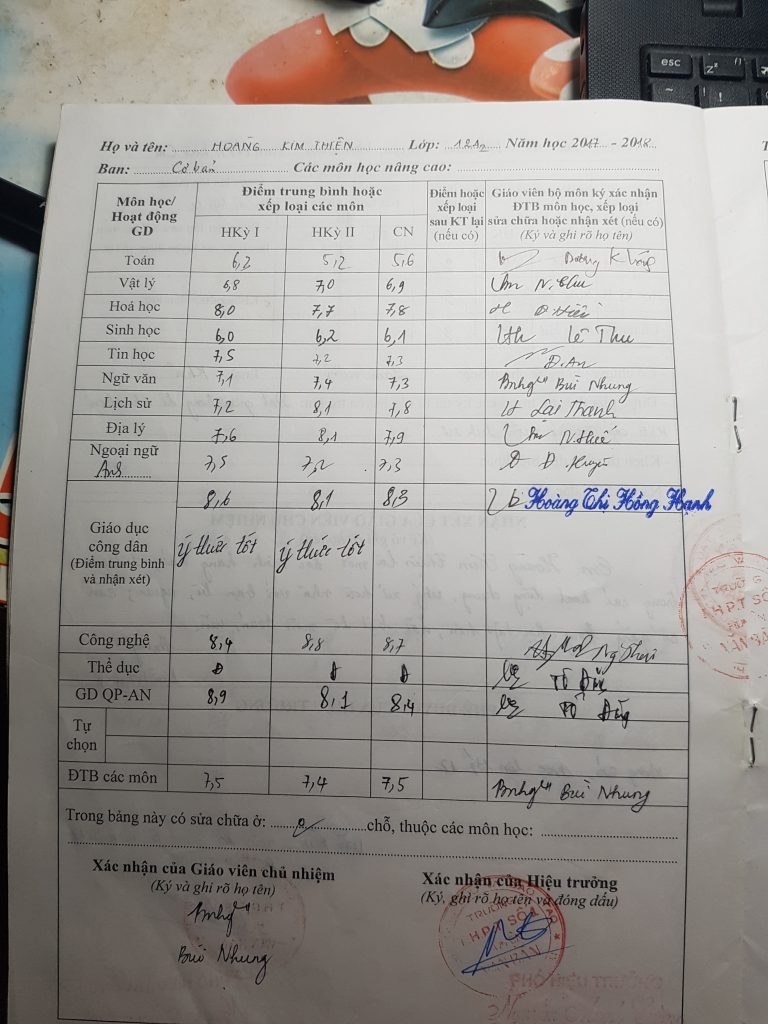 esc
Họ và tên: HOÀNG KIM THIỆN Lớp: 12A2 Năm học 2017 - 2018
Ban: Cơ bản Các môn học nâng cao:
Môn học/ Hoạt động GD
Điểm trung bình hoặc xếp loại các môn
HKỳ I HKỳ II CN
Điểm hoặc xếp loại sau KT lại (nếu có)
Giáo viên bộ môn ký xác nhận ĐTB môn học, xếp loại sửa chữa hoặc nhận xét (nếu có) (Ký và ghi rõ họ tên)
Toán 6,2 5,2 5,6 Dương
Vật lý 6,8 7,0 6,9
Hoá học 8,0 7,7 7,8
Sinh học 6,0 6,2 6,1 Lê Thu
Tin học 7,5 7,2 7,3 Đ.An
Ngữ văn 7,1 7,4 7,3 Bùi Nhung
Lịch sử 7,2 8,1 7,8 Lại Thanh
Địa lý 7,6 8,1 7,9 N.Huế
Ngoại ngữ Anh 7,5 7,2 7,3
Giáo dục công dân (Điểm trung bình và nhận xét) 8,6 8,1 8,3 Hoàng Thị Hồng Hạnh
ý thức tốt ý thức tốt
Công nghệ 8,4 8,8 8,7
Thể dục Đ Đ Đ
GD QP-AN 8,9 8,1 8,4
Tự chọn
ĐTB các môn 7,5 7,4 7,5 Bùi Nhung
Trong bảng này có sửa chữa ở: 0 chỗ, thuộc các môn học:
Xác nhận của Giáo viên chủ nhiệm
(Ký và ghi rõ họ tên)
Bùi Nhung
Xác nhận của Hiệu trưởng
(Ký, ghi rõ họ tên và đóng dấu)
TRƯỜNG
H.P.T SỐ 1
VĂN BÀN